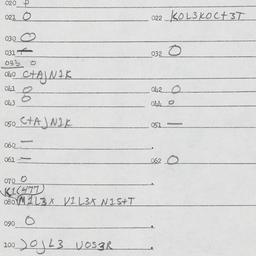 020 P
021 O 022 KOL3KOC+3T
030 O
031 — 032 O
033 O
040 C+AJN1K
041 O 042 O
043 O 044 O
050 C+AJN1K 051 —
060 —
061 — 062 O
070 O
080 V1L3X N1S+T
090 O
100 JOJL3 UOS3R